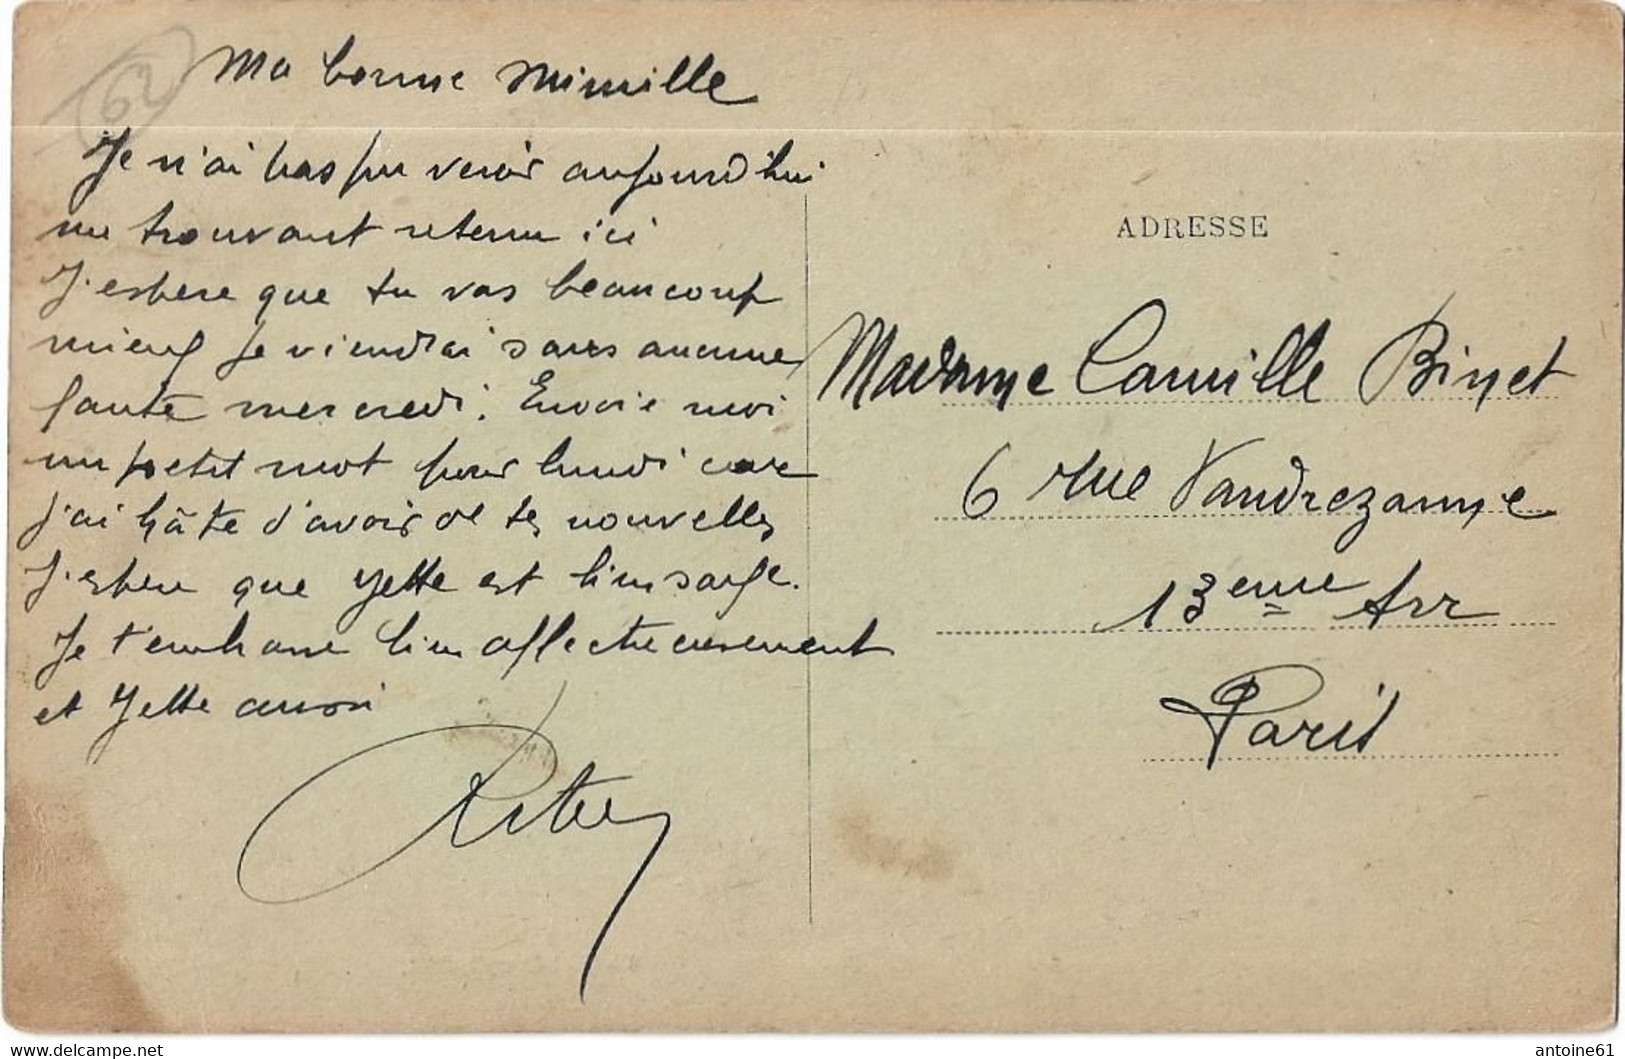 62
Ma bonne Mimille
Je n'ai pas pu venir aujourd'hui
me trouvant retenu ici
J'espère que tu vas beaucoup
mieux Je viendrai sans aucune
faute mercredi. Envoie moi
un petit mot pour lundi car
j'ai hâte d'avoir de tes nouvelles
J'espère que Yette est bien sage.
Je t'embrasse bien affectueusement
et Yette aussi
ADRESSE
Madame Camille Binet
6 rue Vandrezanne
13eme Arr
Paris
antoine61